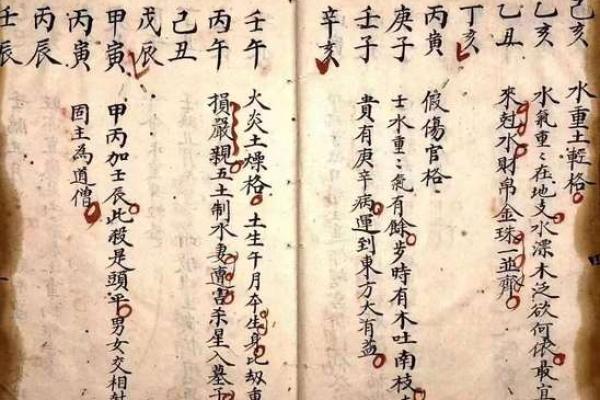 己亥 水重土輕格
乙亥 水氣重々在地支水漂木泛欲何依最宜
乙丑 來尅水財帛金珠一並齊
丁亥
丙寅 假傷官格
庚子 士水重々氣有餘步時有木吐南枝
壬子 貴有庚辛病運到東方大有益
辛亥
壬午 火炎土燥格 土生午月夲生身比刼重
丙午 損嚴親五土制水妻遭害杀星入墓子
己丑
戊辰
甲寅 甲丙加壬辰此殺是頭平男女交相
丙寅 固主為道僧
丙辰
壬辰